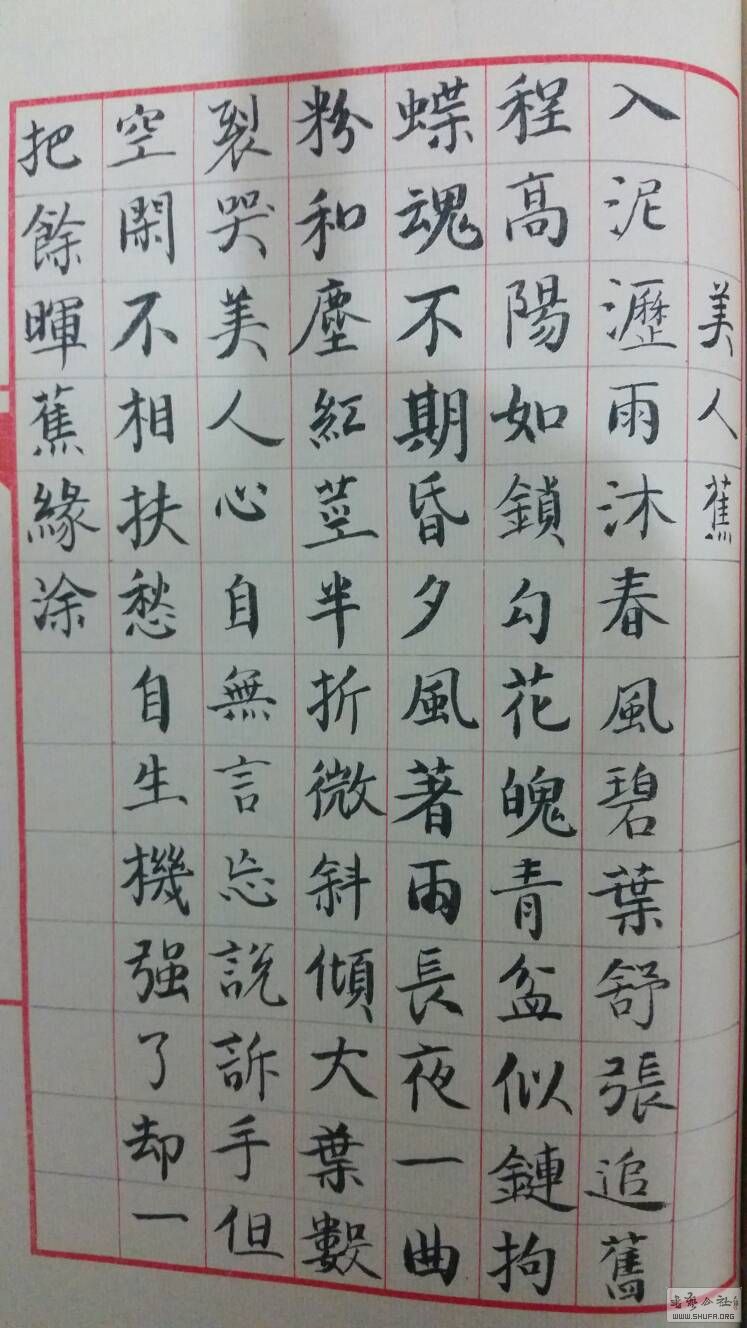 美人蕉
入泥瀝雨沐春風碧葉舒張追舊
程高陽如鎖勾花魄青盆似鏈拘
蝶魂不期昏夕風著雨長夜一曲
粉和塵紅莖半折微斜傾大葉數
裂哭美人心自無言忘說訴手但
空閑不相扶愁自生機强了却一
把餘暉蕉緣涂
WWW.SHUFA.ORG